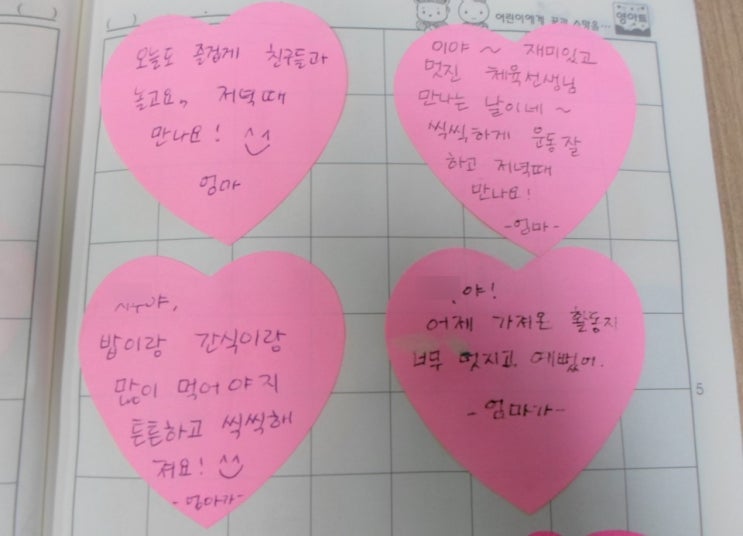 어린이에게 꿈과 소망을...
영아트
오늘도 즐겁게 친구들과
놀고요, 저녁때
만나요!
엄마
이야~ 재미있고
멋진 체육선생님
만나는 날이네~
씩씩하게 운동 잘
하고 저녁때
만나요!
-엄마-
밥이랑 간식이랑
많이 먹어야지
튼튼하고 씩씩해
져요!
-엄마가-
야!
어제 가져온 활동지
너무 멋지고, 예뻤어.
-엄마가-
5